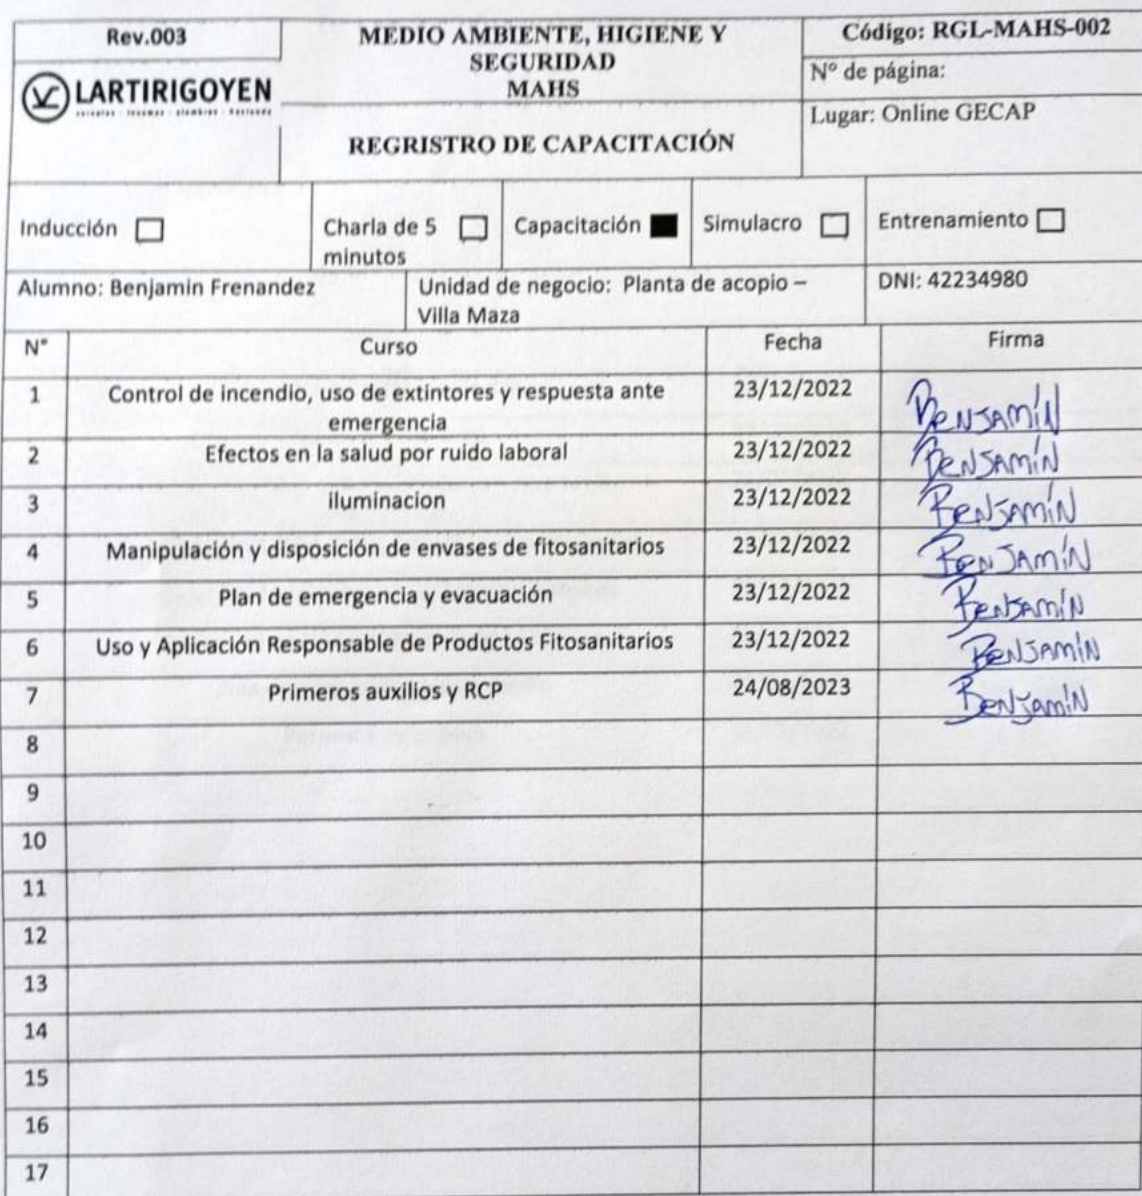 Rev.003
LARTIRIGOYEN
MEDIO AMBIENTE, HIGIENE Y
SEGURIDAD
MAHS
REGRISTRO DE CAPACITACIÓN
Código: RGL-MAHS-002
N° de página:
Lugar: Online GECAP
Inducción
Charla de 5
minutos
Capacitación
Simulacro
Entrenamiento
Alumno: Benjamin Frenandez
Unidad de negocio: Planta de acopio –
Villa Maza
DNI: 42234980
N° Curso Fecha Firma
1 Control de incendio, uso de extintores y respuesta ante 23/12/2022 BENJAMÍN
emergencia
2 Efectos en la salud por ruido laboral 23/12/2022 BENJAMÍN
3 iluminacion 23/12/2022 BENJAMÍN
4 Manipulación y disposición de envases de fitosanitarios 23/12/2022 BENJAMÍN
5 Plan de emergencia y evacuación 23/12/2022 BENJAMÍN
6 Uso y Aplicación Responsable de Productos Fitosanitarios 23/12/2022 BENJAMÍN
7 Primeros auxilios y RCP 24/08/2023 BENJAMÍN
8
9
10
11
12
13
14
15
16
17